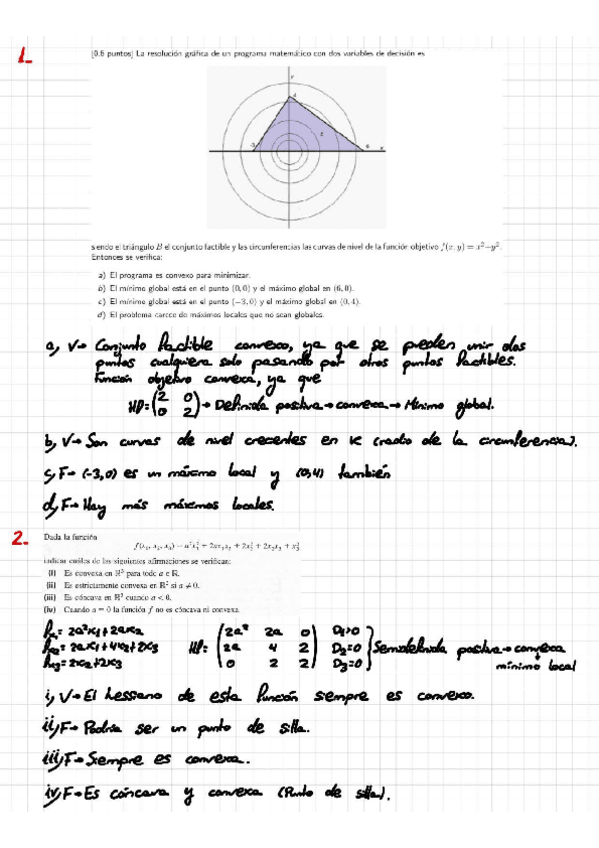 1.
[0.5 puntos] La resolución gráfica de un programa matemático con dos variables de decisión es
y
4
B
-3
6
x
siendo el triángulo B el conjunto factible y las circunferencias las curvas de nivel de la función objetivo f(x, y) = x²+y².
Entonces se verifica:
a) El programa es convexo para minimizar.
b) El mínimo global está en el punto (0,0) y el máximo global en (6,0).
c) El mínimo global está en el punto (−3,0) y el máximo global en (0,4).
d) El problema carece de máximos locales que no sean globales.
a) V→ Conjunto factible convexo, ya que se pueden unir dos
puntos cualquiera solo pasando por otros puntos factibles.
Función objetivo convexa, ya que
Hf= (2 0 0 2) → Definida positiva → convexa → Mínimo global.
b) V→ Son curvas de nivel crecientes en K (radio de la circunferencia).
c) F→ (-3,0) es un máximo local y (0,4) también
d) F→ Hay más máximos locales.
2.
Dada la función
f(x₁, x₂, x₃) = a²x₁² + 2ax₁x₂ + 2x₂² + 2x₂x₃ + x₃²
indicar cuáles de las siguientes afirmaciones se verifican:
(i) Es convexa en ℝ³ para todo a ∈ ℝ.
(ii) Es estrictamente convexa en ℝ³ si a ≠ 0.
(iii) Es cóncava en ℝ³ cuando a < 0.
(iv) Cuando a = 0 la función f no es cóncava ni convexa.
fx₁= 2a²x₁+2ax₂
fx₂= 2ax₁+4x₂+2x₃
fx₃= 2x₂+2x₃
Hf= (2a² 2a 0 2a 4 2 0 2 2) D₁>0 D₂=0 D₃=0 } Semidefinida positiva → convexa
mínimo local
i) V→ El hessiano de esta función siempre es convexo.
ii) F→ Podría ser un punto de silla.
iii) F→ Siempre es convexa.
iv) F→ Es cóncava y convexa (Punto de silla).